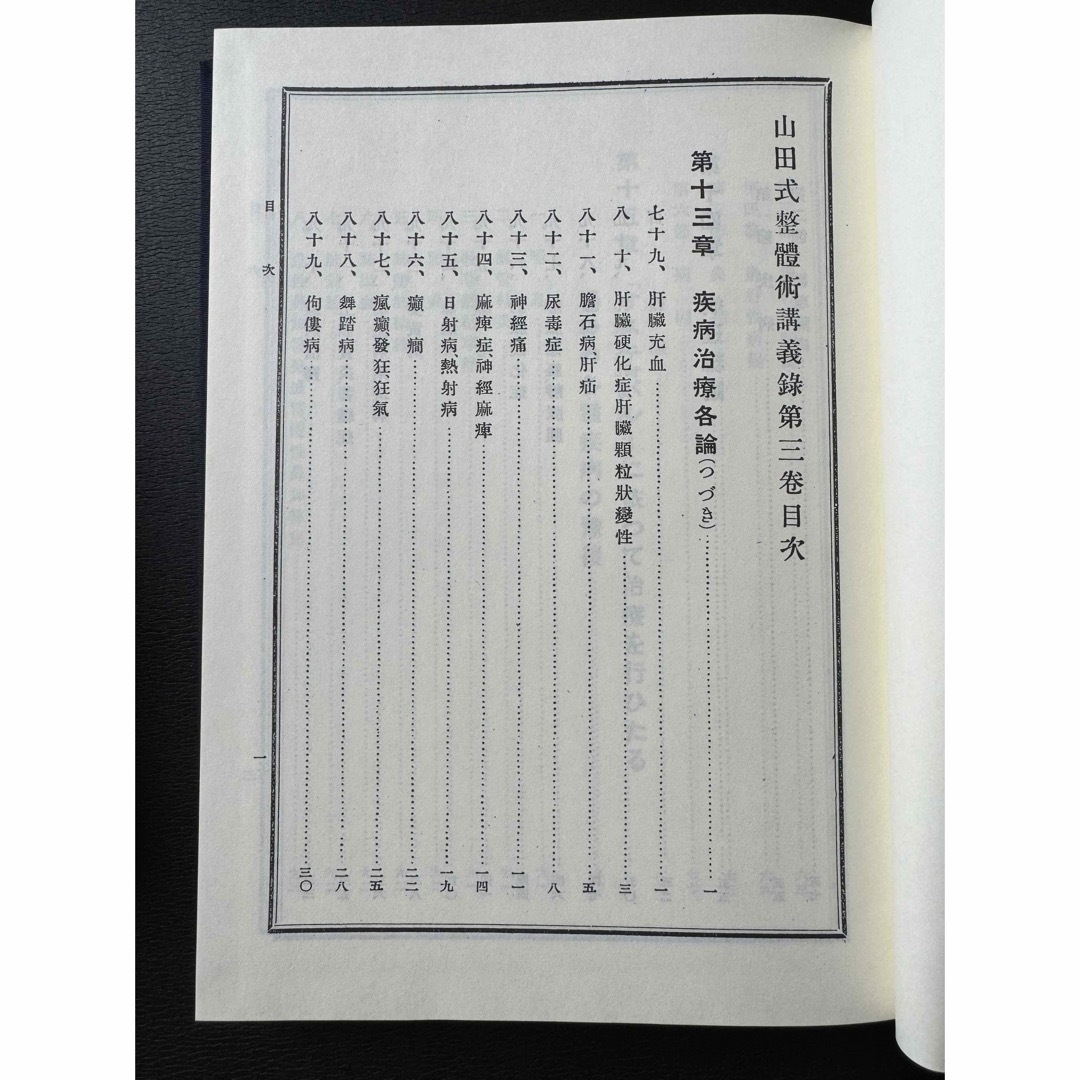 山田式整體術講義錄第三卷目次
第十三章　疾病治療各論(つづき)……一
七十九、肝臟充血……一
八十、肝臟硬化症、肝臟顆粒狀變性……三
八十一、膽石病、肝疝……五
八十二、尿毒症……八
八十三、神經痛……一一
八十四、麻痺症、神經麻痺……一四
八十五、日射病、熱射病……一九
八十六、癲癇……二二
八十七、瘋癲、發狂、狂氣……二五
八十八、舞踏病……二八
八十九、佝僂病……三〇
目次
一